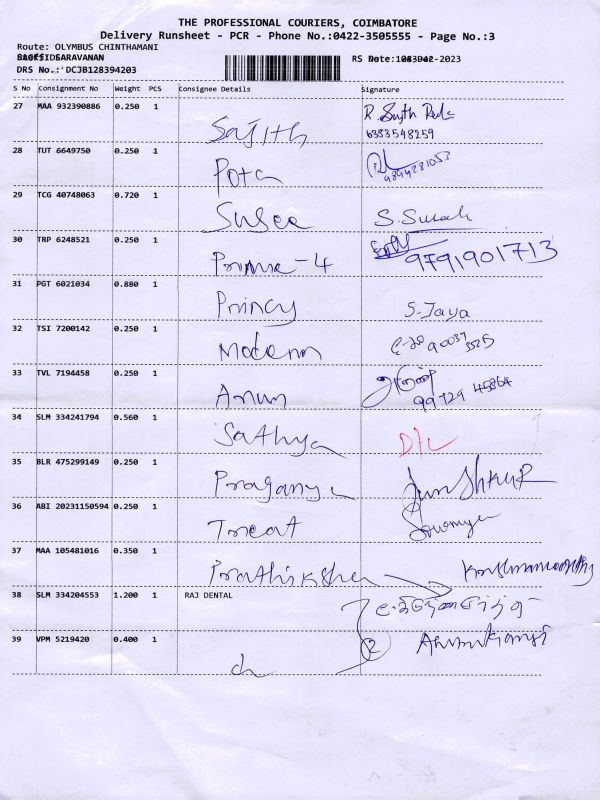 THE PROFESSIONAL COURIERS, COIMBATORE
Delivery Runsheet - PCR - Phone No.:0422-3505555 - Page No.:3
Route: OLYMBUS CHINTHAMANI
SARAVANAN
RS Date: -2023
DRS No.: DCJB128394203
S No Consignment No Weight PCS Consignee Details Signature
27 MAA 932390886 0.250 1 Sajith
6383548259
28 TUT 6649750 0.250 1 Pota
29 TCG 40748063 0.720 1 Susee S. Suresh
30 TRP 6248521 0.250 1 Prime-4 9791901713
31 PGT 6021034 0.880 1 Princy S-Jaya
32 TSI 7200142 0.250 1 Modern
33 TVL 7194458 0.250 1 Arun
99729 45864
34 SLM 334241794 0.560 1 Sathya D/L
35 BLR 475299149 0.250 1 Praganya
36 ABI 20231150594 0.250 1 Treat Sowmya
37 MAA 105481016 0.350 1 Prathiksha Krishnamoorthy
38 SLM 334204553 1.200 1 RAJ DENTAL
39 VPM 5219420 0.400 1 2